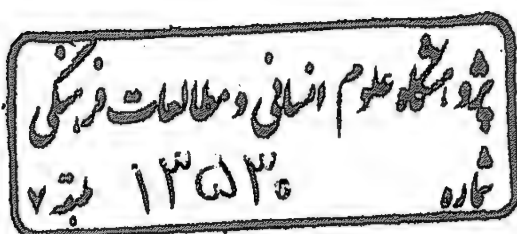 پژوهشگاه علوم انسانی و مطالعات فرهنگی
شماره ۱۳۵۳۰ طبقه ۷